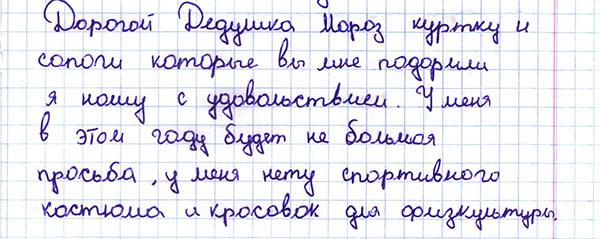 Дорогой Дедушка Мороз куртку и
сапоги которые вы мне подорили
я ношу с удовольствием. У меня
в этом году будет не большая
просьба, у меня нету спортивного
костюма и кросовок для физкультуры.